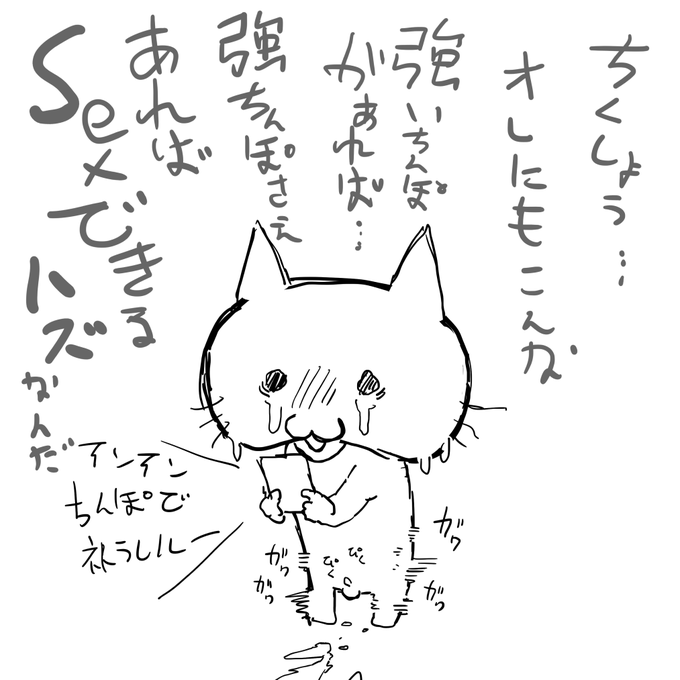 ちくしょう…
オレにもこんな
強いちんぽ
があれば…
強ちんぽさえ
あれば
Sexできる
ハズ
なんだ
インイン
ちんぽで
ネトラレルー
ガク
ガク
ガク
ガク
ぴく
ぴく